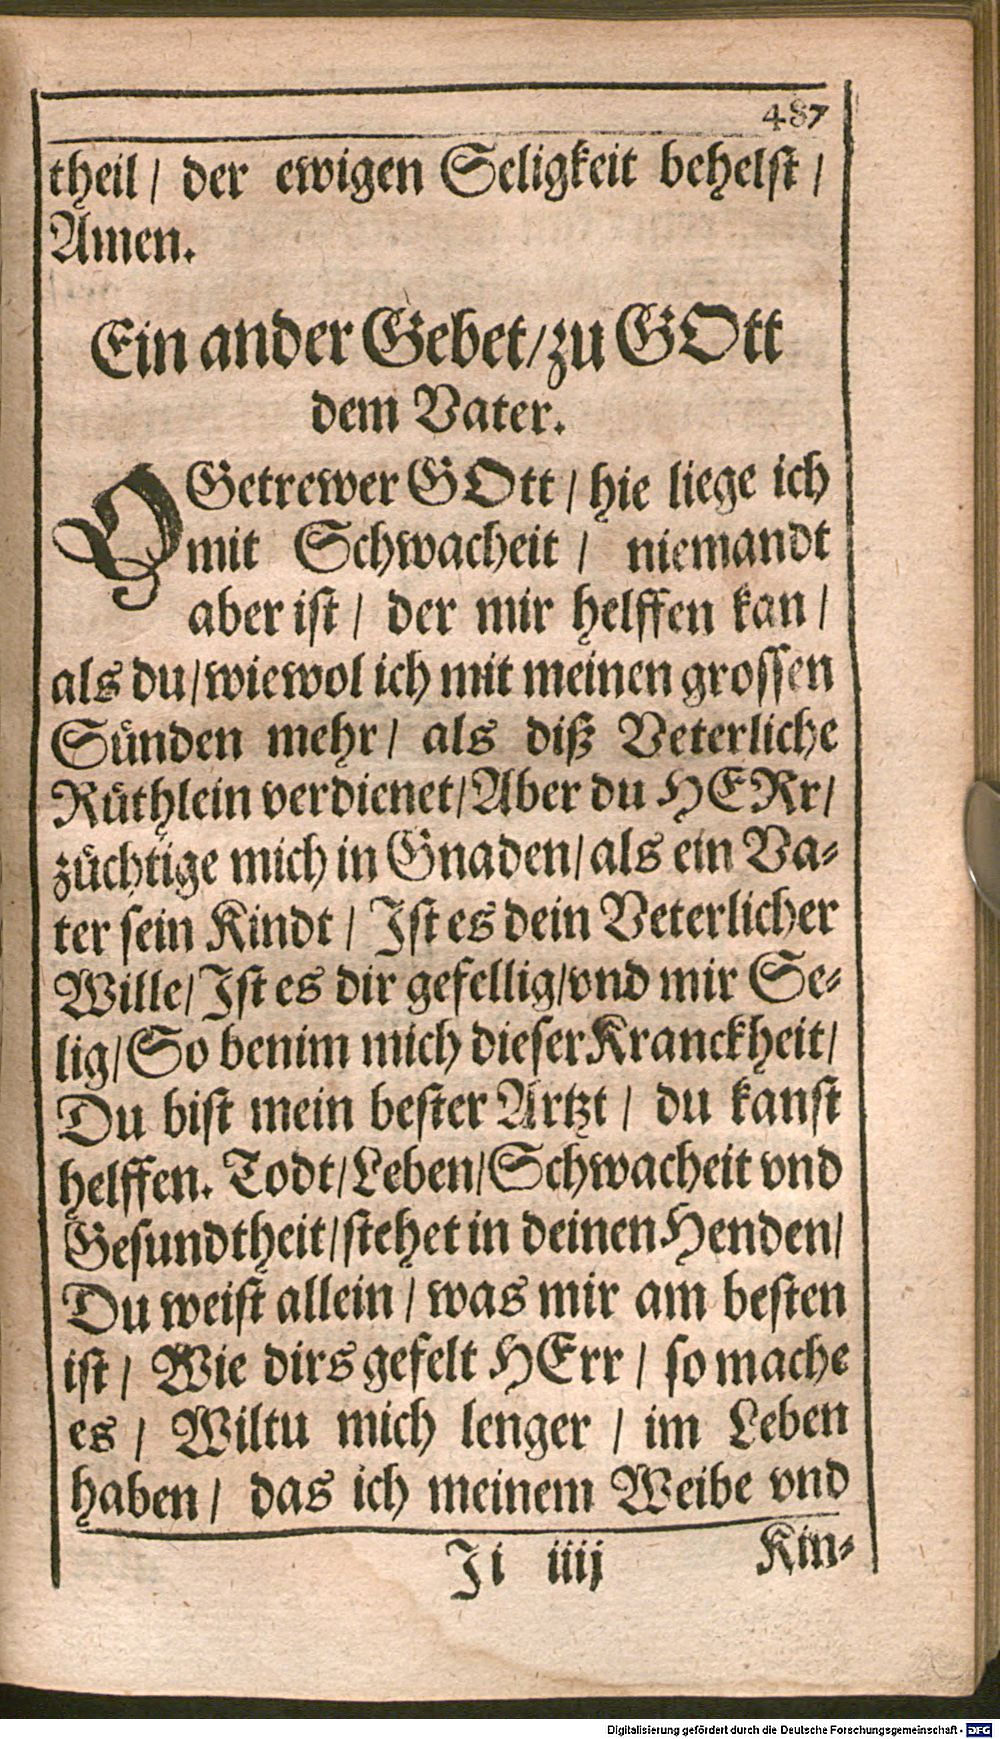 487
theil/ der ewigen Seligkeit behelst/
Amen.
Ein ander Gebet/zu GOtt
dem Vater.
O Getrewer GOtt/hie liege ich
mit Schwacheit/ niemandt
aber ist/ der mir helffen kan/
als du/wiewol ich mit meinen grossen
Sünden mehr/ als diß Veterliche
Rüthlein verdienet/Aber du HERr/
züchtige mich in Gnaden/als ein Va-
ter sein Kindt/ Ist es dein Veterlicher
Wille/Ist es dir gefellig/vnd mir Se-
lig/So benim mich dieser Kranckheit/
Du bist mein bester Artzt/ du kanst
helffen. Todt/Leben/Schwacheit vnd
Gesundtheit/stehet in deinen Henden/
Du weist allein/was mir am besten
ist/ Wie dirs gefelt HErr/ so mache
es/ Wiltu mich lenger/ im Leben
haben/ das ich meinem Weibe vnd
Ii iiij Kin-
Digitalisierung gefördert durch die Deutsche Forschungsgemeinschaft - DFG